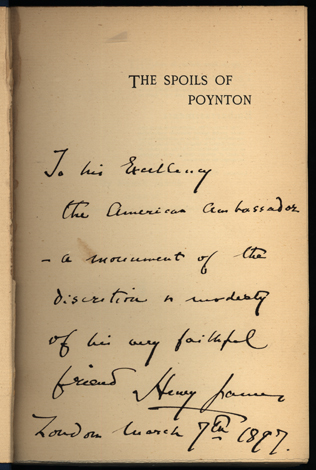 THE SPOILS OF
POYNTON
To his Excellency
the American Ambassador
- a monument of the
discretion & modesty
of his very faithful
friend Henry James
London March 7th 1897.